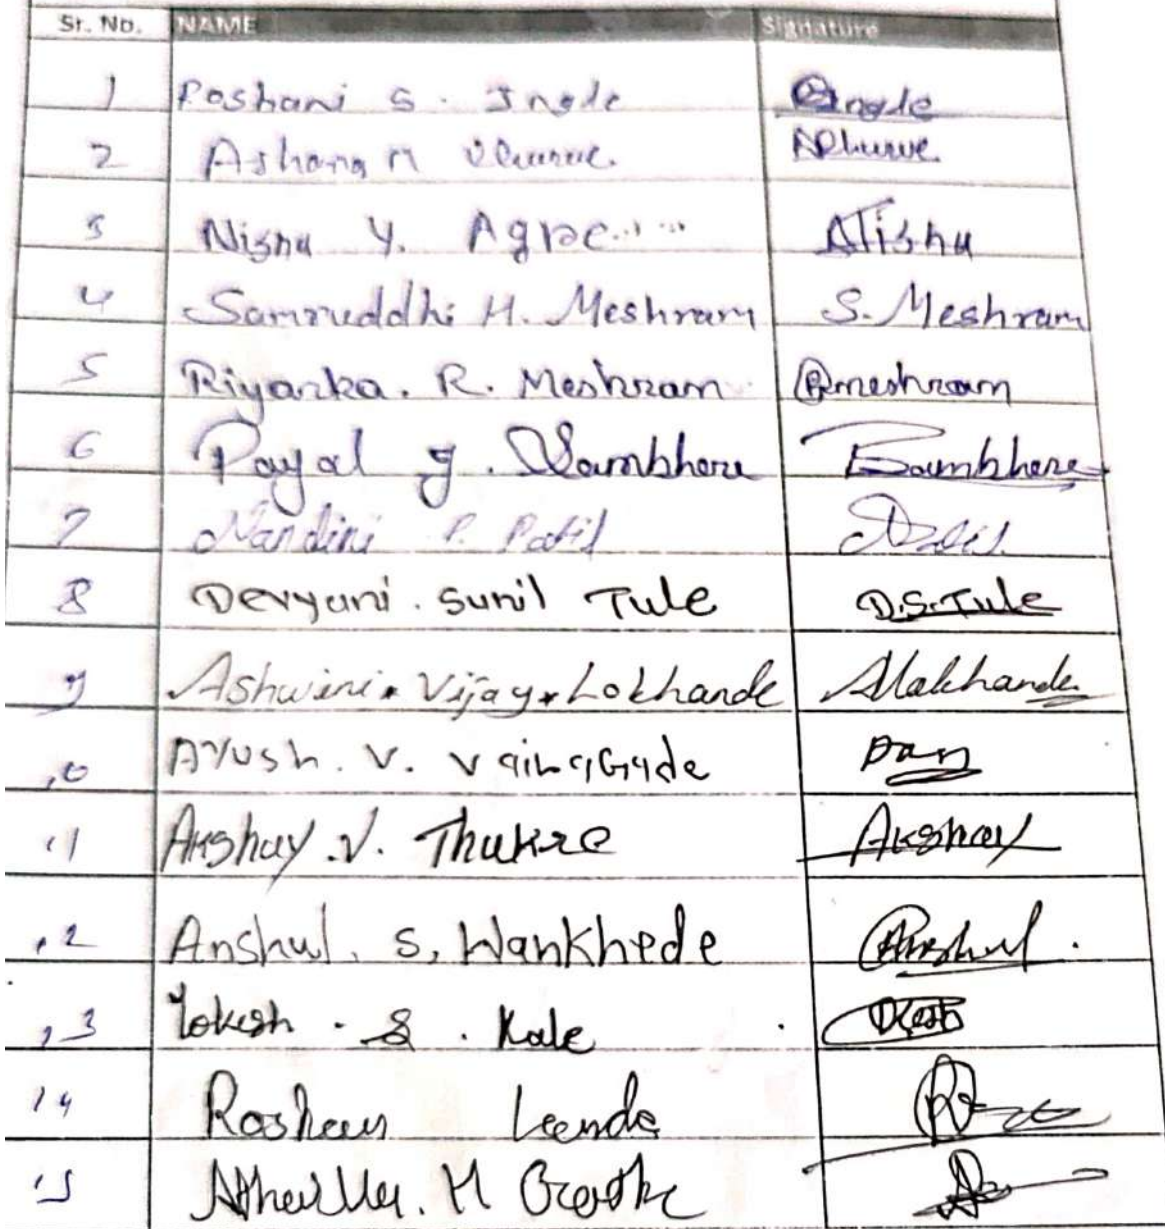 Sr. No. NAME Signature
1 Poshani S. Ingle Ingle
2 Ashana M Dhurve
3 Nishu Y. Agre Nishu
4 Samruddhi H. Meshram S. Meshram
5 Riyanka. R. Meshram Rmeshram
6 Payal g. Bambhore Bambhere
7 Nandini P. Patil Patil
8 Devyani. Sunil Tule D.S.Tule
9 Ashwini. Vijay. Lokhande Alokhande
10 AYUSH. V.
11 Akshay .V. Thakre Akshay
12 Anshul. S. Wankhede Anshul.
13 Lokesh . S . Kale
14 Roshan
15